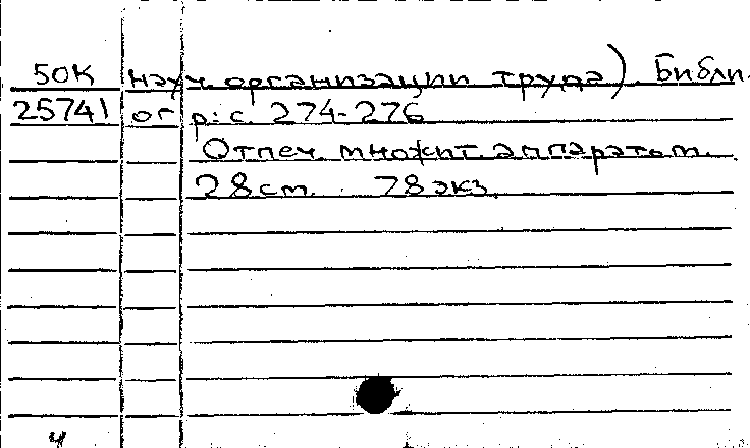 50К науч. организации труда). Библи-
25741 огр.: с. 274-276
Отпеч. множит. аппаратом.
28 см. 78 экз.
4